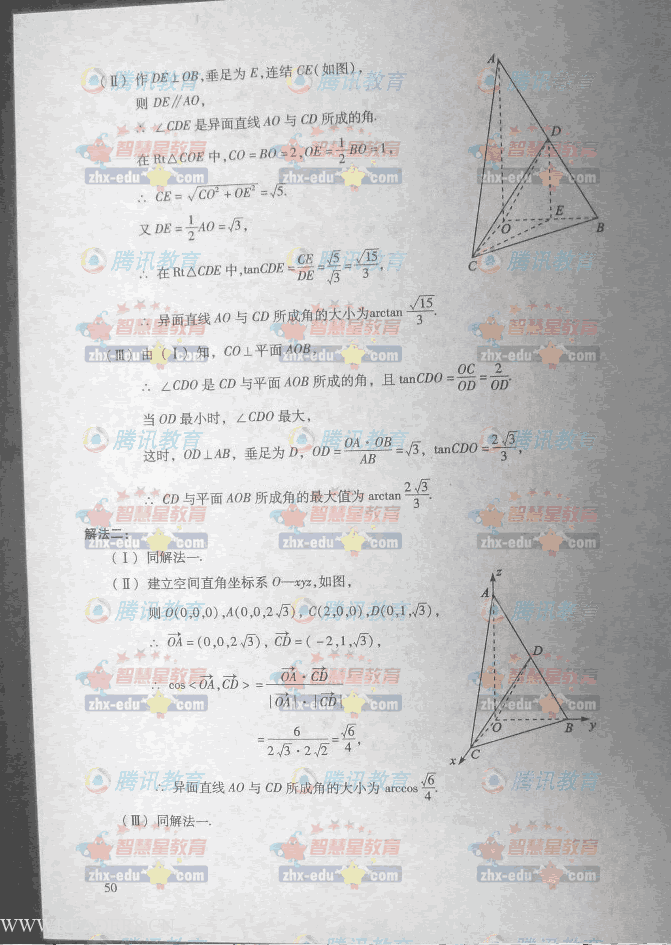 (Ⅱ) 作 DE⊥OB,垂足为 E,连结 CE(如图),
则 DE∥AO,
∴ ∠CDE 是异面直线 AO 与 CD 所成的角.
在 Rt△COE 中,CO=BO=2,OE=1/2 BO=1,
∴ CE=√(CO²+OE²)=√5.
又 DE=1/2 AO=√3,
∴ 在 Rt△CDE 中,tanCDE=CE/DE=√5/√3=√15/3,
∴ 异面直线 AO 与 CD 所成角的大小为arctan √15/3.
(Ⅲ) 由 (Ⅰ) 知, CO⊥平面 AOB,
∴ ∠CDO 是 CD 与平面 AOB 所成的角, 且 tanCDO=OC/OD=2/OD.
当 OD 最小时, ∠CDO 最大,
这时, OD⊥AB, 垂足为 D, OD=OA·OB/AB=√3, tanCDO=2√3/3,
∴ CD 与平面 AOB 所成角的最大值为 arctan 2√3/3.
A
D
O
E
B
C
解法二:
(Ⅰ) 同解法一.
(Ⅱ) 建立空间直角坐标系 O—xyz,如图,
则 O(0,0,0),A(0,0,2√3),C(2,0,0),D(0,1,√3),
∴ OA→=(0,0,2√3), CD→=(-2,1,√3),
∴ cos<OA→,CD→>=OA→·CD→/|OA→|·|CD→|
=6/2√3·2√2=√6/4,
∴ 异面直线 AO 与 CD 所成角的大小为 arccos √6/4.
(Ⅲ) 同解法一.
z
A
D
O
B
y
C
x
50
www.
腾讯教育
智慧星教育
zhx-edu.com